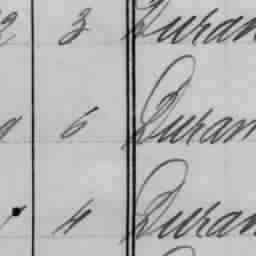 3 Duran
6 Duran
4 Duran